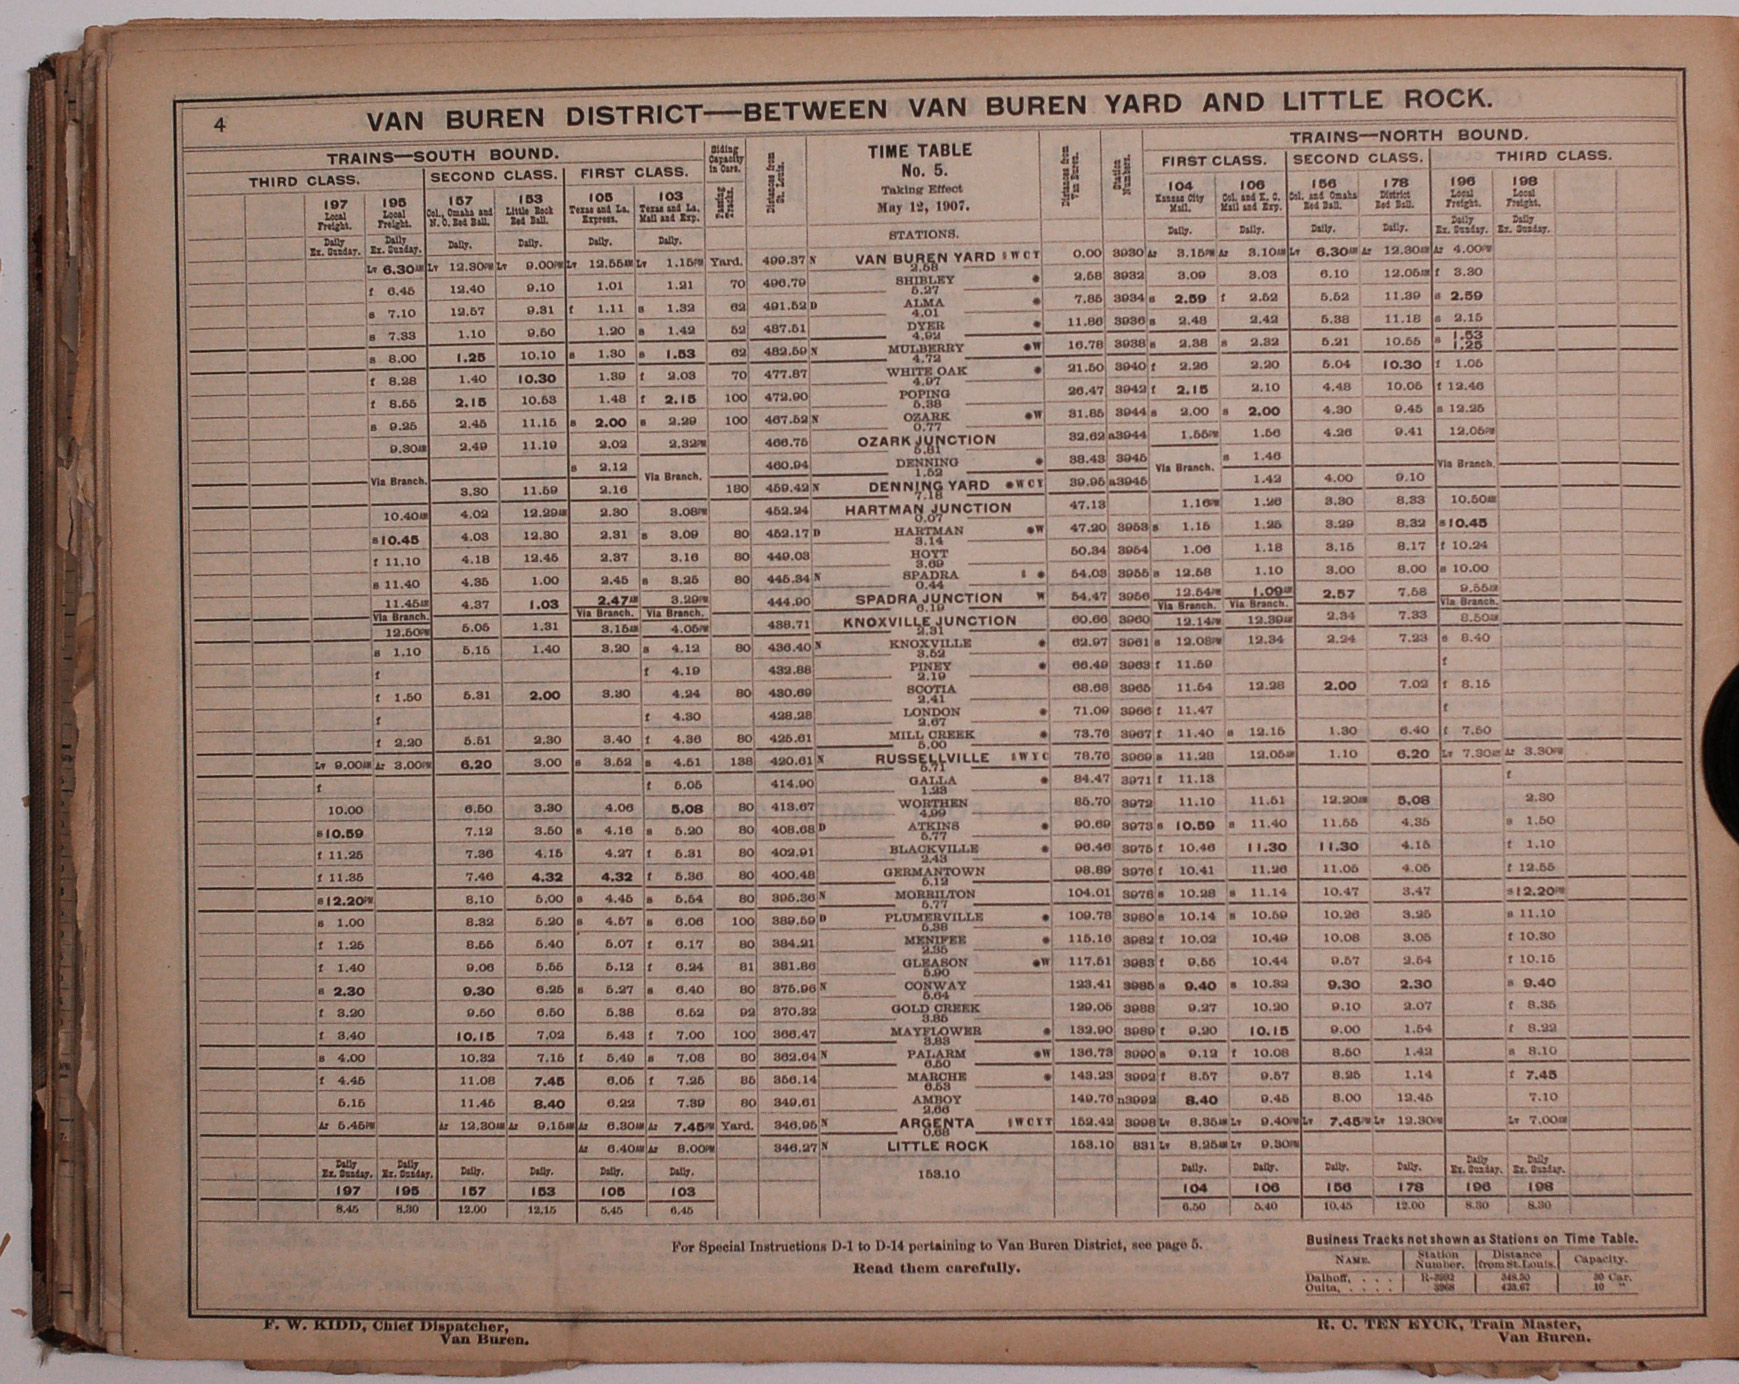 4
VAN BUREN DISTRICT—BETWEEN VAN BUREN YARD AND LITTLE ROCK.
TRAINS—SOUTH BOUND. Siding Capacity in Cars. Passing Tracks. Distances from St. Louis. TIME TABLE No. 5. Taking Effect May 12, 1907. Distances from Van Buren. Station Numbers. TRAINS—NORTH BOUND.
THIRD CLASS. SECOND CLASS. FIRST CLASS. FIRST CLASS. SECOND CLASS. THIRD CLASS.
197 195 157 153 105 103 104 106 156 178 196 198
Local Freight. Local Freight. Col., Omaha and N. O. Red Ball. Little Rock Red Ball. Texas and La. Express. Texas and La. Mail and Exp. Kansas City Mail. Col. and K. C. Mail and Exp. Col. and Omaha Red Ball. District Red Ball. Local Freight. Local Freight.
Daily Ex. Sunday. Daily Ex. Sunday. Daily. Daily. Daily. Daily. STATIONS. Daily. Daily. Daily. Daily. Daily Ex. Sunday. Daily Ex. Sunday.
Lv 6.30AM Lv 12.30PM Lv 9.00PM Lv 12.55AM Lv 1.15PM Yard. 499.37 N VAN BUREN YARD WCY 0.00 3930 Ar 3.15PM Ar 3.10AM Lv 6.30AM Ar 12.30AM Ar 4.00PM
2.58
f 6.45 12.40 9.10 1.01 1.21 70 496.79 SHIBLEY 2.58 3932 3.09 3.03 6.10 12.05AM f 3.30
5.27
s 7.10 12.57 9.31 f 1.11 s 1.32 62 491.52 D ALMA 7.85 3934 s 2.59 f 2.52 5.52 11.39 s 2.59
4.01
s 7.33 1.10 9.50 1.20 s 1.42 52 487.51 DYER 11.86 3936 s 2.48 2.42 5.38 11.18 s 2.15
4.92
s 8.00 1.25 10.10 s 1.30 s 1.53 62 482.59 N MULBERRY W 16.78 3938 s 2.38 s 2.32 5.21 10.55 s 1.53 1.25
4.72
f 8.28 1.40 10.30 1.39 f 2.03 70 477.87 WHITE OAK 21.50 3940 f 2.26 2.20 5.04 10.30 f 1.05
4.97
f 8.55 2.15 10.53 1.48 f 2.15 100 472.90 POPING 26.47 3942 f 2.15 2.10 4.48 10.05 f 12.46
5.38
s 9.25 2.45 11.15 s 2.00 s 2.29 100 467.52 N OZARK W 31.85 3944 s 2.00 s 2.00 4.30 9.45 s 12.25
0.77
9.30AM 2.49 11.19 2.02 2.32PM 466.75 OZARK JUNCTION 32.62 n3944 1.55PM 1.56 4.26 9.41 12.05PM
5.81
s 2.12 Via Branch. 460.94 DENNING 38.43 3945 Via Branch. s 1.46 Via Branch.
1.52
Via Branch. 3.30 11.59 2.16 180 459.42 N DENNING YARD WCY 39.95 n3945 1.42 4.00 9.10
7.18
10.40AM 4.02 12.29AM 2.30 3.08PM 452.24 HARTMAN JUNCTION 47.13 1.16PM 1.26 3.30 8.33 10.50AM
0.07
s10.45 4.03 12.30 2.31 s 3.09 80 452.17 D HARTMAN W 47.20 3953 s 1.15 1.25 3.29 8.32 s10.45
3.14
f 11.10 4.18 12.45 2.37 3.16 80 449.03 HOYT 50.34 3954 1.06 1.18 3.15 8.17 f 10.24
3.69
s 11.40 4.35 1.00 2.45 s 3.25 80 445.34 N SPADRA 54.03 3955 s 12.58 1.10 3.00 8.00 s 10.00
0.44
11.45AM 4.37 1.03 2.47AM 3.29PM 444.90 SPADRA JUNCTION W 54.47 3956 12.54PM 1.09AM 2.57 7.58 9.55AM
Via Branch. Via Branch. Via Branch. 6.19 Via Branch. Via Branch. Via Branch.
12.50PM 5.05 1.31 3.15AM 4.05PM 438.71 KNOXVILLE JUNCTION 60.66 3960 12.14PM 12.39AM 2.34 7.33 8.50AM
2.31
s 1.10 5.15 1.40 3.20 s 4.12 80 436.40 N KNOXVILLE 62.97 3961 s 12.08PM 12.34 2.24 7.23 s 8.40
3.52
f f 4.19 432.88 PINEY 66.49 3963 f 11.59 f
2.19
f 1.50 5.31 2.00 3.30 4.24 80 430.69 SCOTIA 68.68 3965 11.54 12.28 2.00 7.02 f 8.15
2.41
f f 4.30 428.28 LONDON 71.09 3966 f 11.47 f
2.67
f 2.20 5.51 2.30 3.40 f 4.36 80 425.61 MILL CREEK 73.76 3967 f 11.40 s 12.15 1.30 6.40 f 7.50
5.00
Lv 9.00AM Ar 3.00PM 6.20 3.00 s 3.52 s 4.51 138 420.61 N RUSSELLVILLE WYC 78.76 3969 s 11.28 12.05AM 1.10 6.20 Lv 7.30AM Ar 3.30PM
5.71
f f 5.05 414.90 GALLA 84.47 3971 f 11.13 f
1.23
10.00 6.50 3.30 4.06 5.08 80 413.67 WORTHEN 85.70 3972 11.10 11.51 12.20AM 5.08 2.30
4.99
s10.59 7.12 3.50 s 4.16 s 5.20 80 408.68 D ATKINS 90.69 3973 s 10.59 s 11.40 11.55 4.35 s 1.50
5.77
f 11.25 7.36 4.15 4.27 f 5.31 80 402.91 BLACKVILLE 96.46 3975 f 10.46 11.30 11.30 4.15 f 1.10
2.43
f 11.35 7.46 4.32 4.32 f 5.36 80 400.48 GERMANTOWN 98.89 3976 f 10.41 11.26 11.05 4.05 f 12.55
5.12
s12.20PM 8.10 5.00 s 4.45 s 5.54 80 395.36 N MORRILTON 104.01 3978 s 10.28 s 11.14 10.47 3.47 s12.20PM
5.77
s 1.00 8.32 5.20 s 4.57 s 6.06 100 389.59 D PLUMERVILLE 109.78 3980 s 10.14 s 10.59 10.26 3.25 s 11.10
5.38
f 1.25 8.55 5.40 5.07 f 6.17 80 384.21 MENIFEE 115.16 3982 f 10.02 10.49 10.08 3.05 f 10.30
2.35
f 1.40 9.06 5.55 5.12 f 6.24 81 381.86 GLEASON W 117.51 3983 f 9.55 10.44 9.57 2.54 f 10.15
5.90
s 2.30 9.30 6.25 s 5.27 s 6.40 80 375.96 N CONWAY 123.41 3985 s 9.40 s 10.32 9.30 2.30 s 9.40
5.64
f 3.20 9.50 6.50 5.38 6.52 92 370.32 GOLD CREEK 129.05 3988 9.27 10.20 9.10 2.07 f 8.35
3.85
f 3.40 10.15 7.02 5.43 f 7.00 100 366.47 MAYFLOWER 132.90 3989 f 9.20 10.15 9.00 1.54 f 8.22
3.83
s 4.00 10.32 7.15 f 5.49 s 7.08 80 362.64 N PALARM W 136.73 3990 s 9.12 f 10.08 8.50 1.42 s 8.10
6.50
f 4.45 11.08 7.45 6.05 f 7.25 85 356.14 MARCHE 143.23 3992 f 8.57 9.57 8.25 1.14 f 7.45
6.53
5.15 11.45 8.40 6.22 7.39 80 349.61 AMBOY 149.76 n3992 8.40 9.45 8.00 12.45 7.10
2.66
Ar 5.45PM Ar 12.30AM Ar 9.15AM Ar 6.30AM Ar 7.45PM Yard. 346.95 N ARGENTA WCYT 152.42 3998 Lv 8.35AM Lv 9.40PM Lv 7.45PM Lv 12.30PM Lv 7.00AM
0.68
Ar 6.40AM Ar 8.00PM 346.27 N LITTLE ROCK 153.10 831 Lv 8.25AM Lv 9.30PM
Daily Ex. Sunday. Daily Ex. Sunday. Daily. Daily. Daily. Daily. 153.10 Daily. Daily. Daily. Daily. Daily Ex. Sunday. Daily Ex. Sunday.
197 195 157 153 105 103 104 106 156 178 196 198
8.45 8.30 12.00 12.15 5.45 6.45 6.50 5.40 10.45 12.00 8.30 8.30
For Special Instructions D-1 to D-14 pertaining to Van Buren District, see page 5.
Read them carefully.
Business Tracks not shown as Stations on Time Table.
NAME. Station Number. Distance from St. Louis. Capacity.
Dalhoff, . . . . R-3992 348.30 30 Car.
Ouita, . . . . . 3968 423.67 10 "
F. W. KIDD, Chief Dispatcher,
Van Buren.
R. C. TEN EYCK, Train Master,
Van Buren.